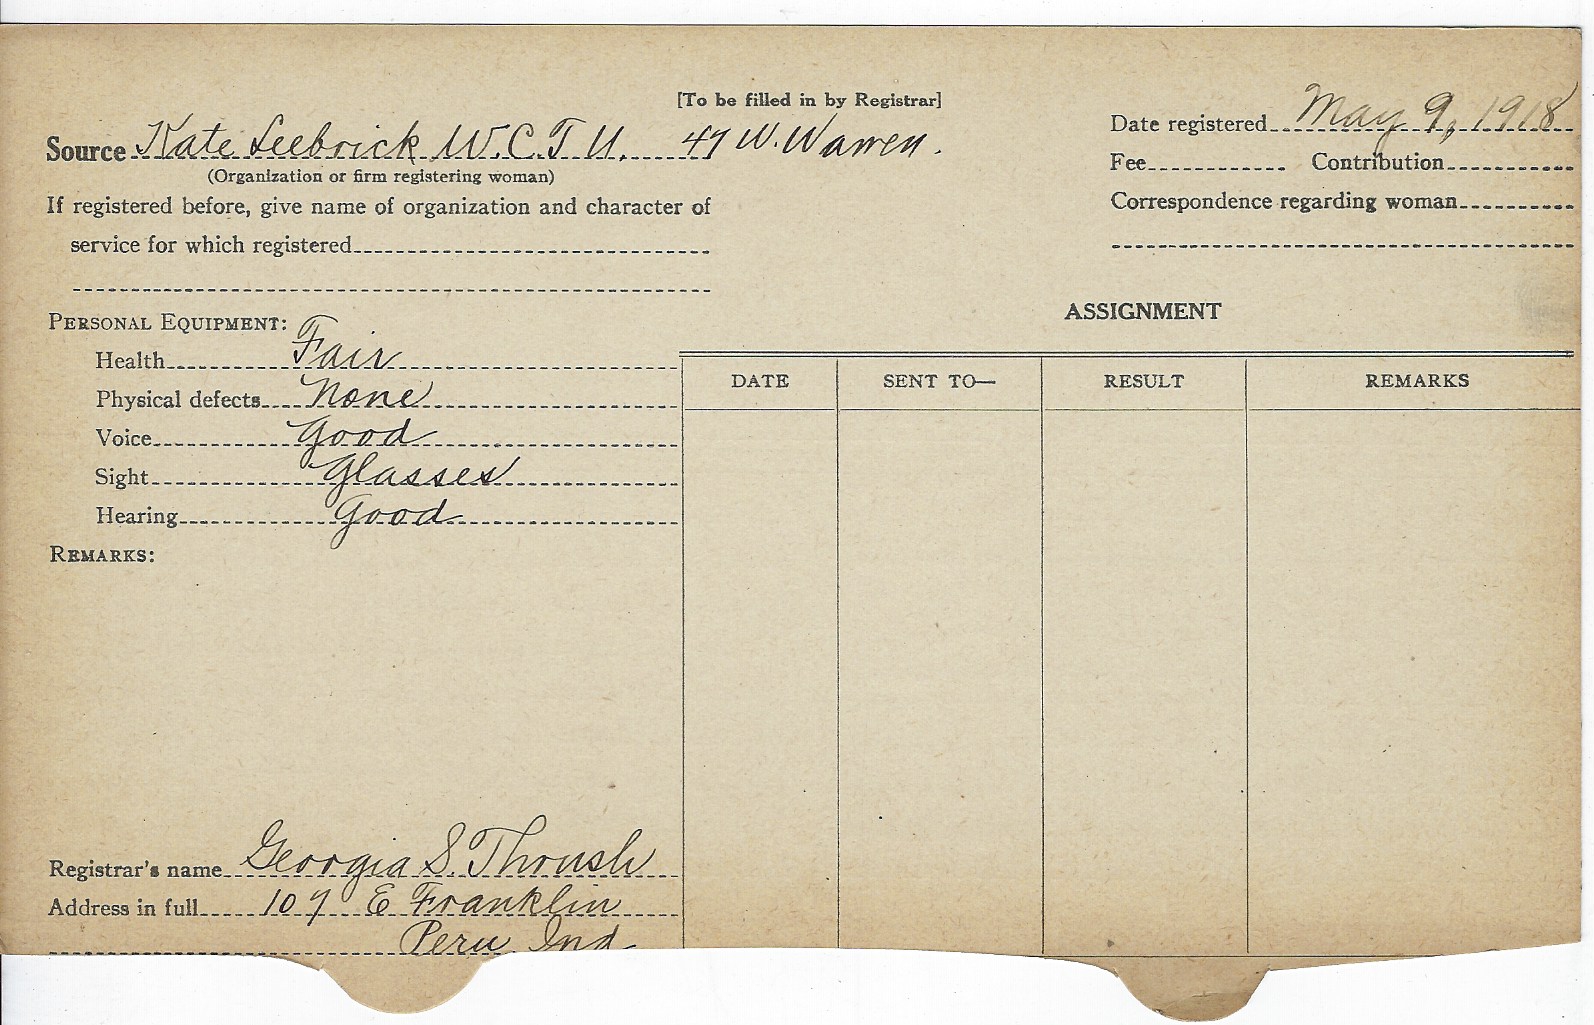 [To be filled in by Registrar]
Source Kate Seebrick W.C.T.U. 47 W. Warren.
(Organization or firm registering woman)
If registered before, give name of organization and character of
service for which registered
Date registered May 9, 1918
Fee Contribution
Correspondence regarding woman
PERSONAL EQUIPMENT:
Health Fair
Physical defects None
Voice Good
Sight Glasses
Hearing Good
REMARKS:
ASSIGNMENT
DATE SENT TO— RESULT REMARKS
Registrar's name Georgia S. Thrush
Address in full 107 E Franklin
Peru Ind